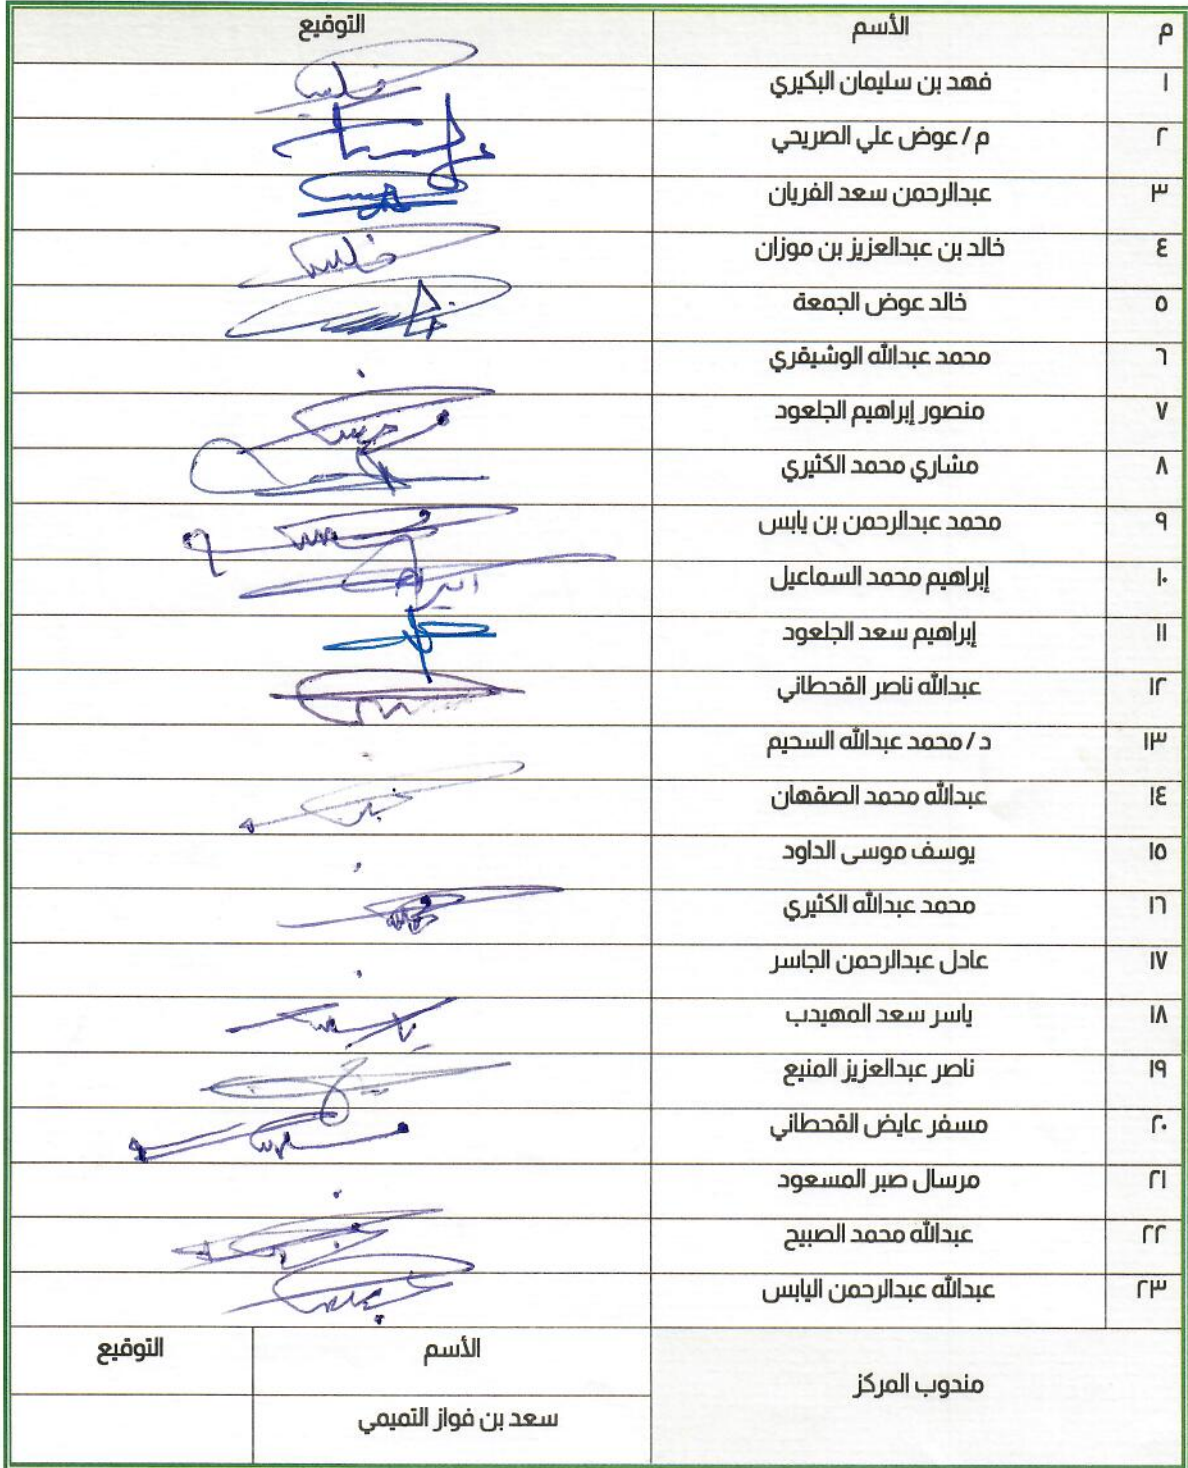 م الأسم التوقيع
١ فهد بن سليمان البكيري
٢ م / عوض علي الصريحي
٣ عبدالرحمن سعد الفريان
٤ خالد بن عبدالعزيز بن موزان
٥ خالد عوض الجمعة
٦ محمد عبدالله الوشيقري
٧ منصور إبراهيم الجلعود
٨ مشاري محمد الكثيري
٩ محمد عبدالرحمن بن يابس
١٠ إبراهيم محمد السماعيل
١١ إبراهيم سعد الجلعود
١٢ عبدالله ناصر القحطاني
١٣ د / محمد عبدالله السحيم
١٤ عبدالله محمد الصقهان
١٥ يوسف موسى الداود
١٦ محمد عبدالله الكثيري
١٧ عادل عبدالرحمن الجاسر
١٨ ياسر سعد المهيدب
١٩ ناصر عبدالعزيز المنيع
٢٠ مسفر عايض القحطاني
٢١ مرسال صبر المسعود
٢٢ عبدالله محمد الصبيح
٢٣ عبدالله عبدالرحمن اليابس
مندوب المركز
الأسم التوقيع
سعد بن فواز التميمي